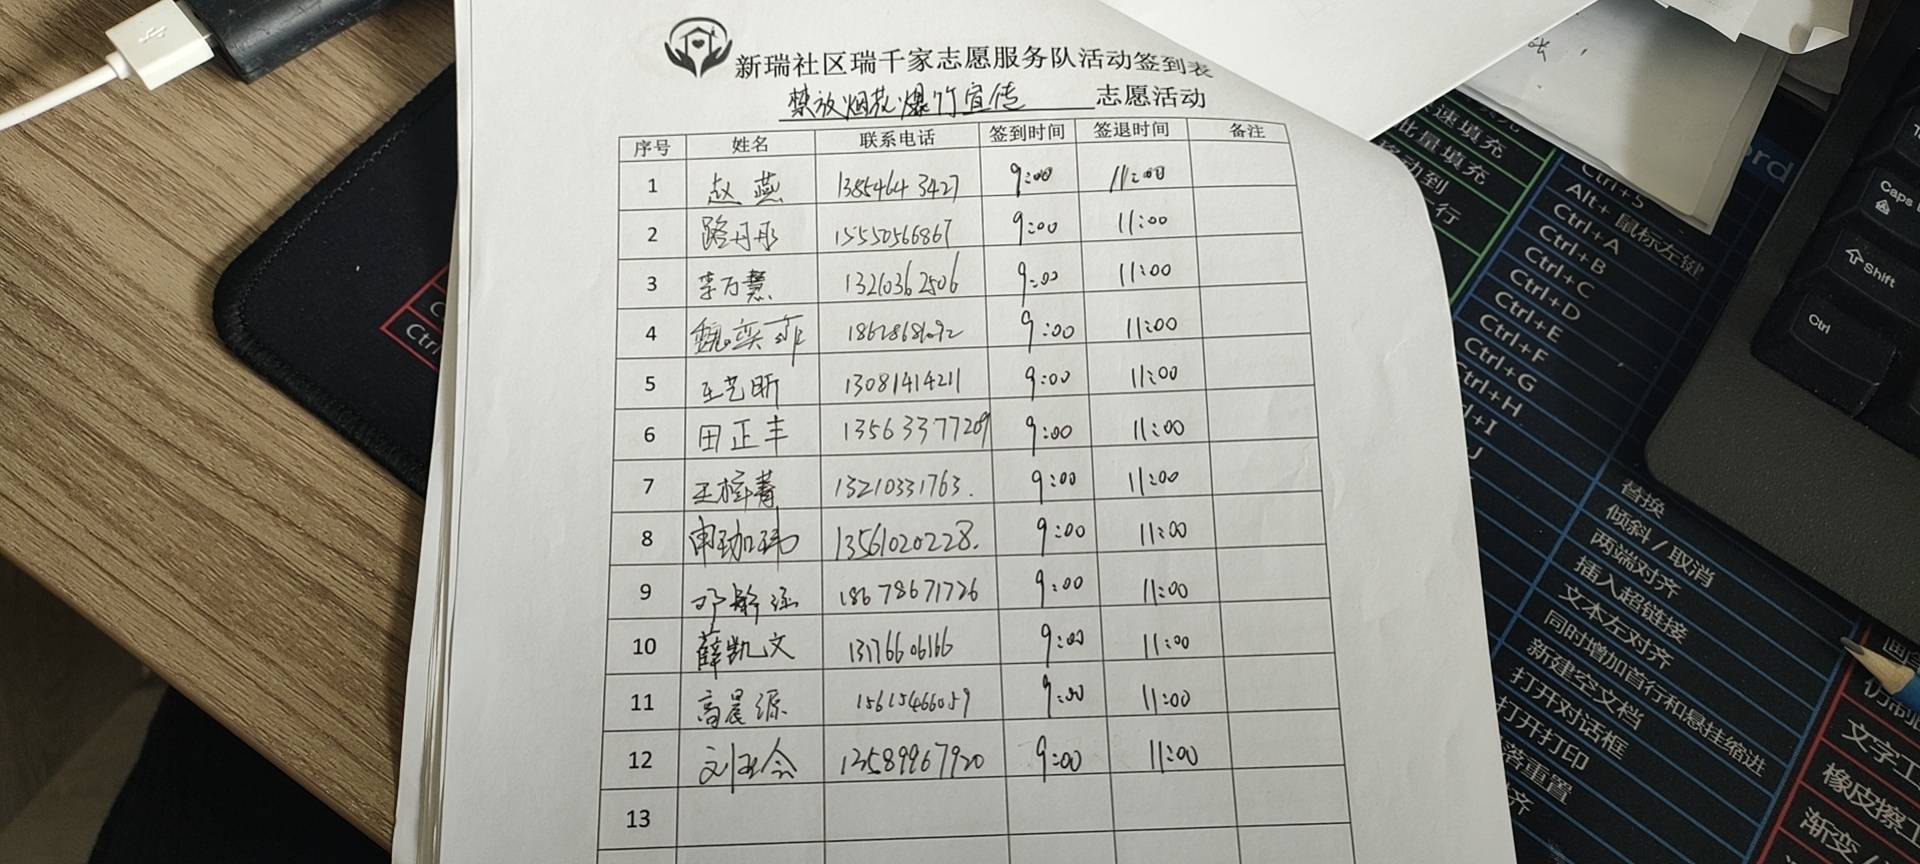 新瑞社区瑞千家志愿服务队活动签到表
禁放烟花爆竹宣传 志愿活动
序号 姓名 联系电话 签到时间 签退时间 备注
1 赵燕 13854643427 9:00 11:00
2 路丹彤 15550566867 9:00 11:00
3 李万慧 13210362506 9:00 11:00
4 魏奕菲 9:00 11:00
5 王艺昕 13081414211 9:00 11:00
6 田正丰 13563377209 9:00 11:00
7 王梓菁 13210331763. 9:00 11:00
8 申珈玮 13561020228. 9:00 11:00
9 邓 涵 18678671726 9:00 11:00
10 薛凯文 13176606166 9:00 11:00
11 高晨源 15615466059 9:00 11:00
12 刘 会 13589967920 9:00 11:00
13
速填充
批量填充
移动到
行
Ctrl+S
Alt+鼠标左键
Ctrl+A
Ctrl+B
Ctrl+C
Ctrl+D
Ctrl+E
Ctrl+F
Ctrl+G
Ctrl+H
替换
倾斜/取消
两端对齐
插入超链接
文本左对齐
同时增加首行和悬挂缩进
新建空文档
打开对话框
打开打印
重置
文字工
橡皮擦工
渐变
Caps
Shift
Ctrl